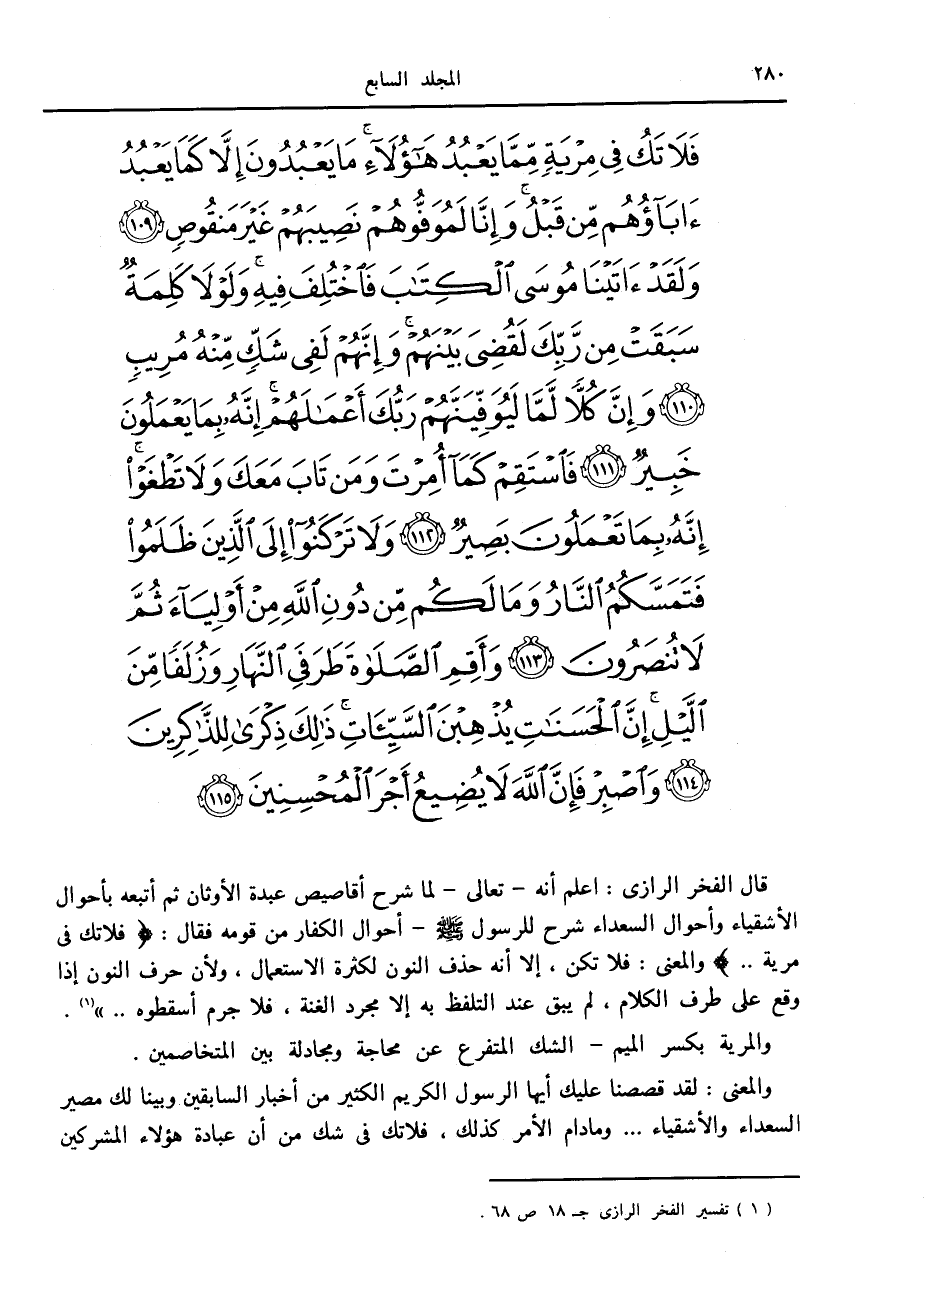 ٢٨٠
المجلد السابع
فَلَا تَكُ فِى مِرْيَةٍ مِّمَّا يَعْبُدُ هَٰٓؤُلَآءِ ۚ مَا يَعْبُدُونَ إِلَّا كَمَا يَعْبُدُ
ءَابَآؤُهُم مِّن قَبْلُ ۚ وَإِنَّا لَمُوَفُّوهُمْ نَصِيبَهُمْ غَيْرَ مَنقُوصٍ ١٠٩
وَلَقَدْ ءَاتَيْنَا مُوسَى ٱلْكِتَٰبَ فَٱخْتُلِفَ فِيهِ ۚ وَلَوْلَا كَلِمَةٌ
سَبَقَتْ مِن رَّبِّكَ لَقُضِىَ بَيْنَهُمْ ۚ وَإِنَّهُمْ لَفِى شَكٍّ مِّنْهُ مُرِيبٍ
١١٠ وَإِنَّ كُلًّا لَّمَّا لَيُوَفِّيَنَّهُمْ رَبُّكَ أَعْمَٰلَهُمْ ۚ إِنَّهُۥ بِمَا يَعْمَلُونَ
خَبِيرٌ ١١١ فَٱسْتَقِمْ كَمَآ أُمِرْتَ وَمَن تَابَ مَعَكَ وَلَا تَطْغَوْا۟ ۚ
إِنَّهُۥ بِمَا تَعْمَلُونَ بَصِيرٌ ١١٢ وَلَا تَرْكَنُوٓا۟ إِلَى ٱلَّذِينَ ظَلَمُوا۟
فَتَمَسَّكُمُ ٱلنَّارُ وَمَا لَكُم مِّن دُونِ ٱللَّهِ مِنْ أَوْلِيَآءَ ثُمَّ
لَا تُنصَرُونَ ١١٣ وَأَقِمِ ٱلصَّلَوٰةَ طَرَفَىِ ٱلنَّهَارِ وَزُلَفًا مِّنَ
ٱلَّيْلِ ۚ إِنَّ ٱلْحَسَنَٰتِ يُذْهِبْنَ ٱلسَّيِّـَٔاتِ ۚ ذَٰلِكَ ذِكْرَىٰ لِلذَّٰكِرِينَ
١١٤ وَٱصْبِرْ فَإِنَّ ٱللَّهَ لَا يُضِيعُ أَجْرَ ٱلْمُحْسِنِينَ ١١٥
قال الفخر الرازى : اعلم أنه – تعالى – لما شرح أقاصيص عبدة الأوثان ثم أتبعه بأحوال
الأشقياء وأحوال السعداء شرح للرسول ﷺ – أحوال الكفار من قومه فقال : ﴿ فلاتك فى
مرية .. ﴾ والمعنى : فلا تكن ، إلا أنه حذف النون لكثرة الاستعمال ، ولأن حرف النون إذا
وقع على طرف الكلام ، لم يبق عند التلفظ به إلا مجرد الغنة ، فلا جرم أسقطوه .. »(١) .
والمرية بكسر الميم – الشك المتفرع عن محاجة ومجادلة بين المتخاصمين .
والمعنى : لقد قصصنا عليك أيها الرسول الكريم الكثير من أخبار السابقين وبينا لك مصير
السعداء والأشقياء ... ومادام الأمر كذلك ، فلاتك فى شك من أن عبادة هؤلاء المشركين
( ١ ) تفسير الفخر الرازى جـ ١٨ ص ٦٨ .